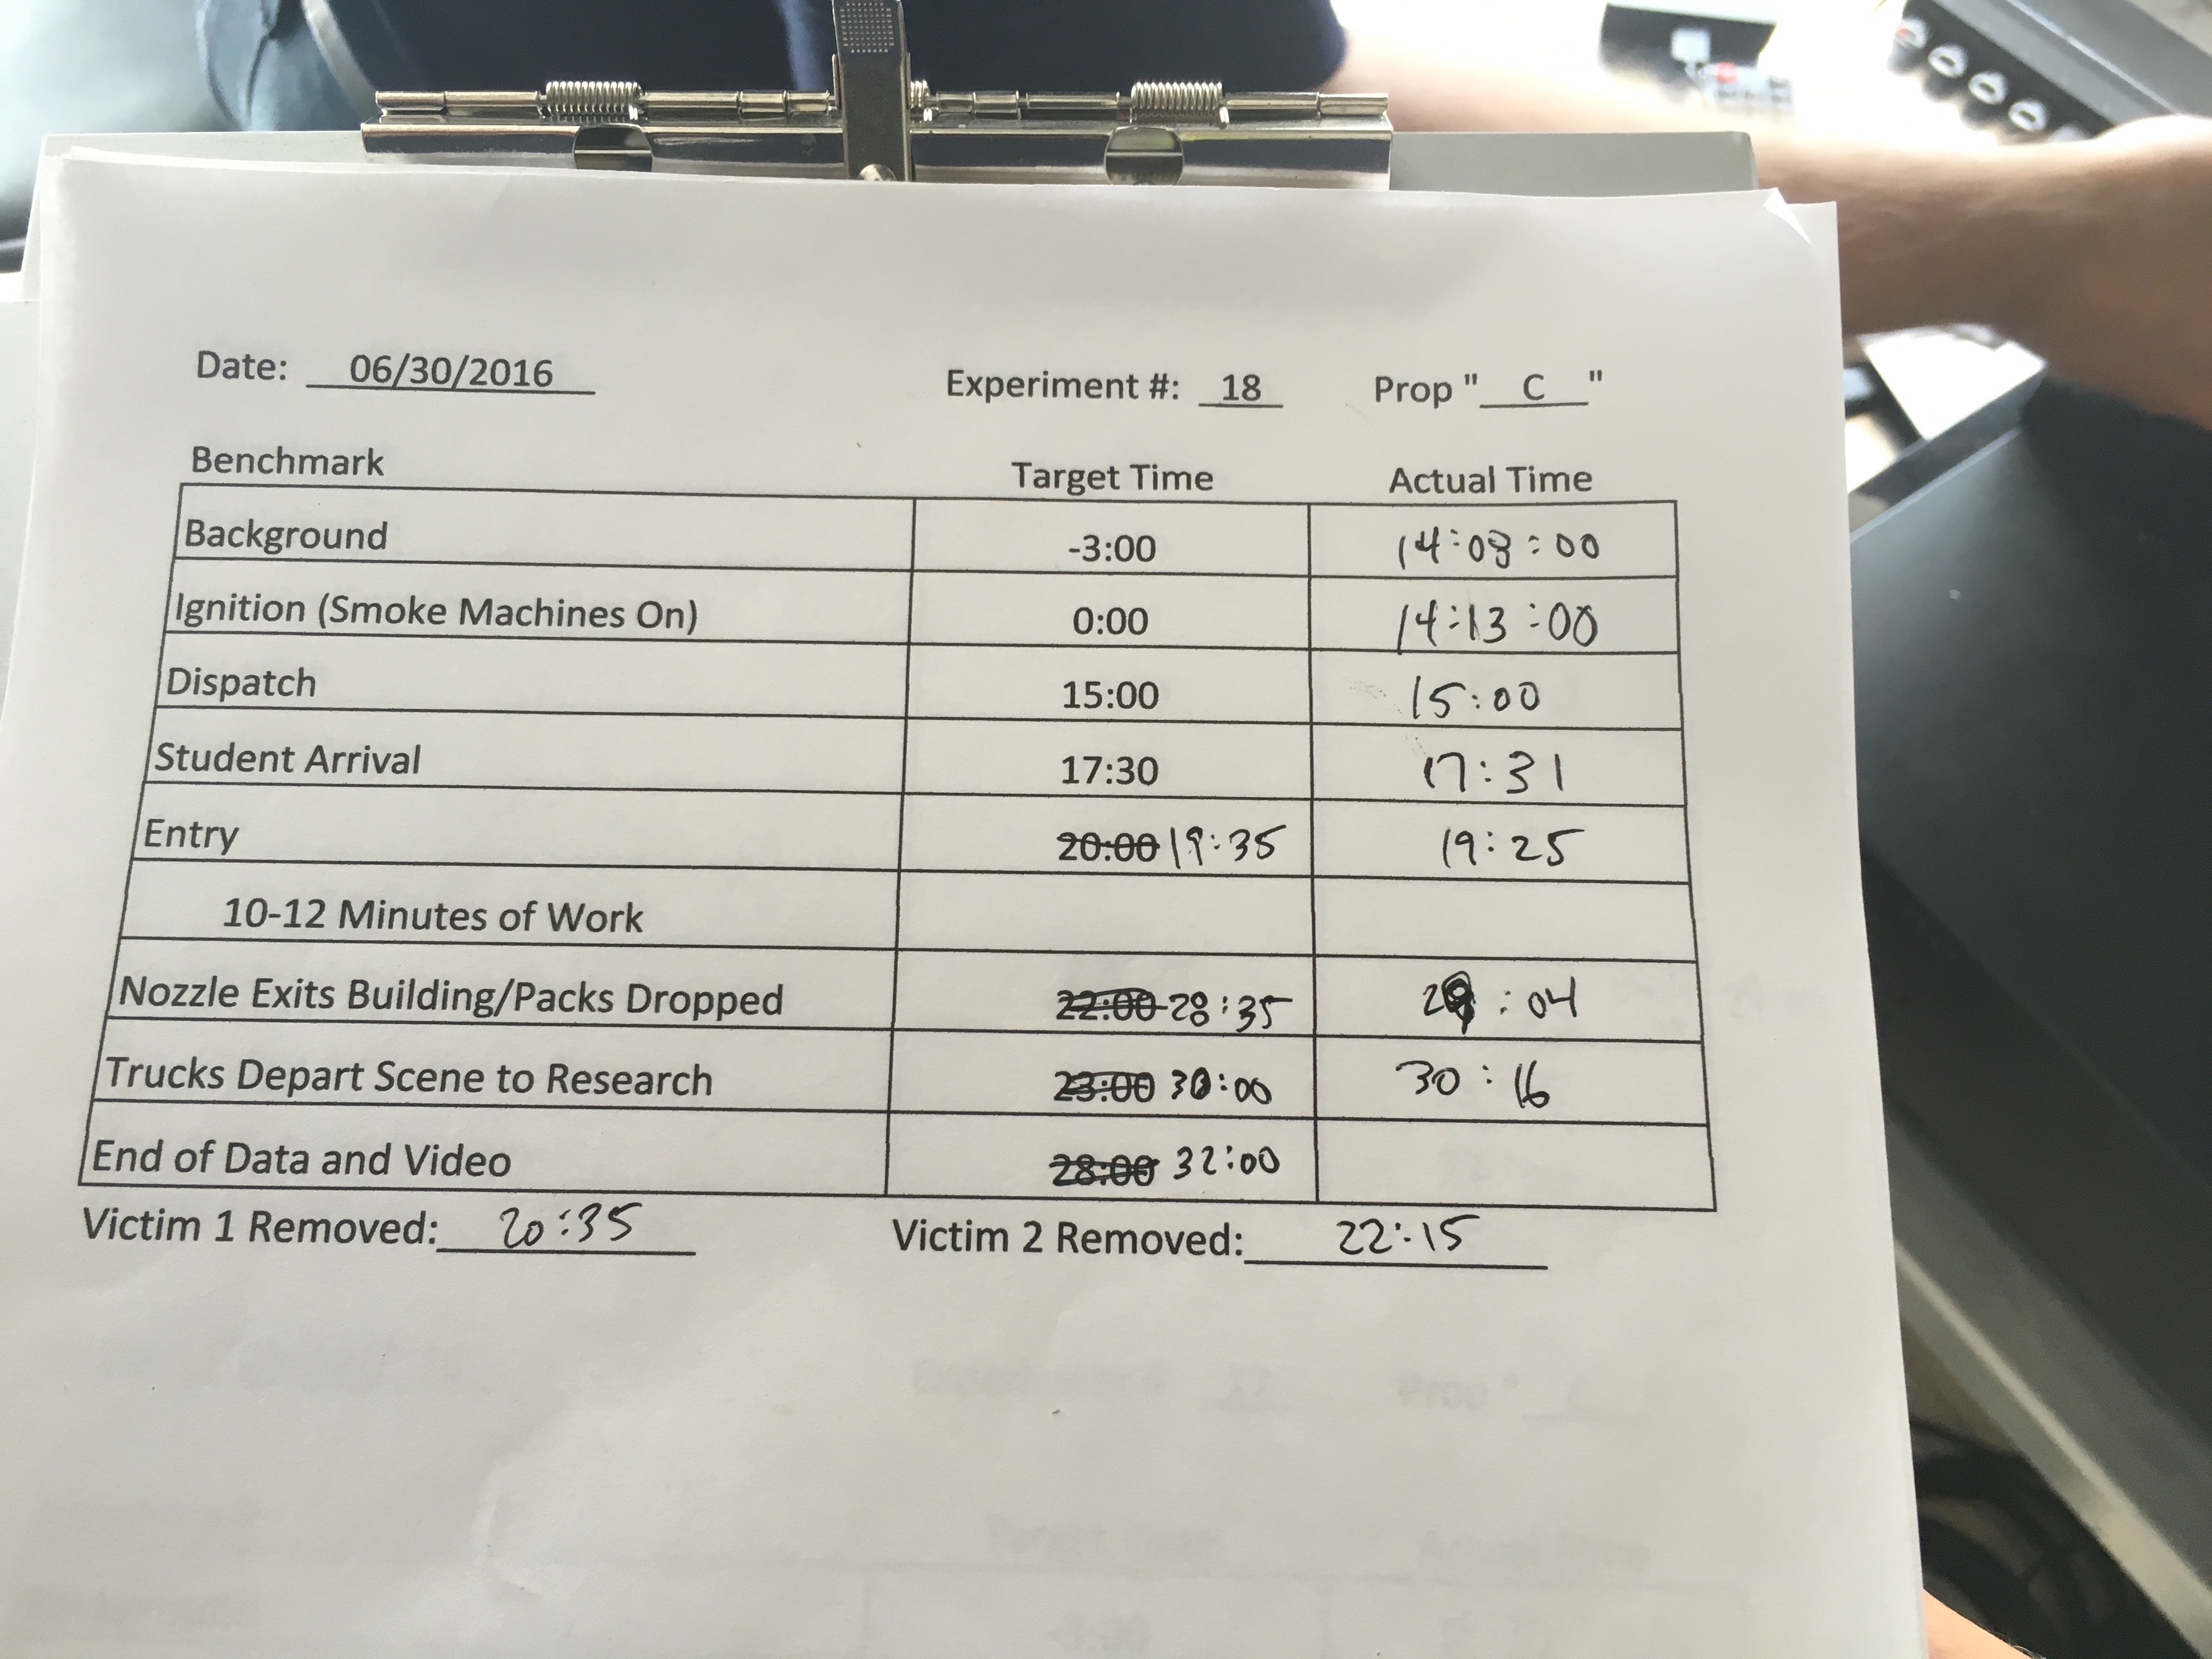 Date: 06/30/2016 Experiment #: 18 Prop " C "
Benchmark Target Time Actual Time
Background -3:00 14:08:00
Ignition (Smoke Machines On) 0:00 14:13:00
Dispatch 15:00 15:00
Student Arrival 17:30 17:31
Entry 20:00 19:35 19:25
10-12 Minutes of Work
Nozzle Exits Building/Packs Dropped 22:00 28:35 29:04
Trucks Depart Scene to Research 23:00 30:00 30:16
End of Data and Video 28:00 32:00
Victim 1 Removed: 20:35 Victim 2 Removed: 22:15